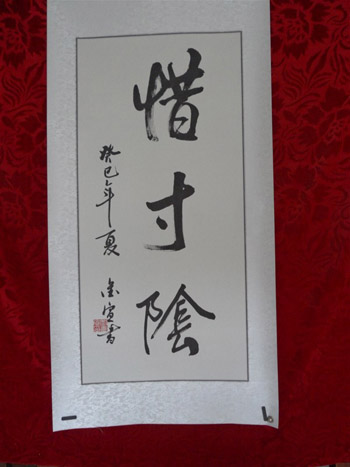 惜寸陰
癸巳年夏
宣書